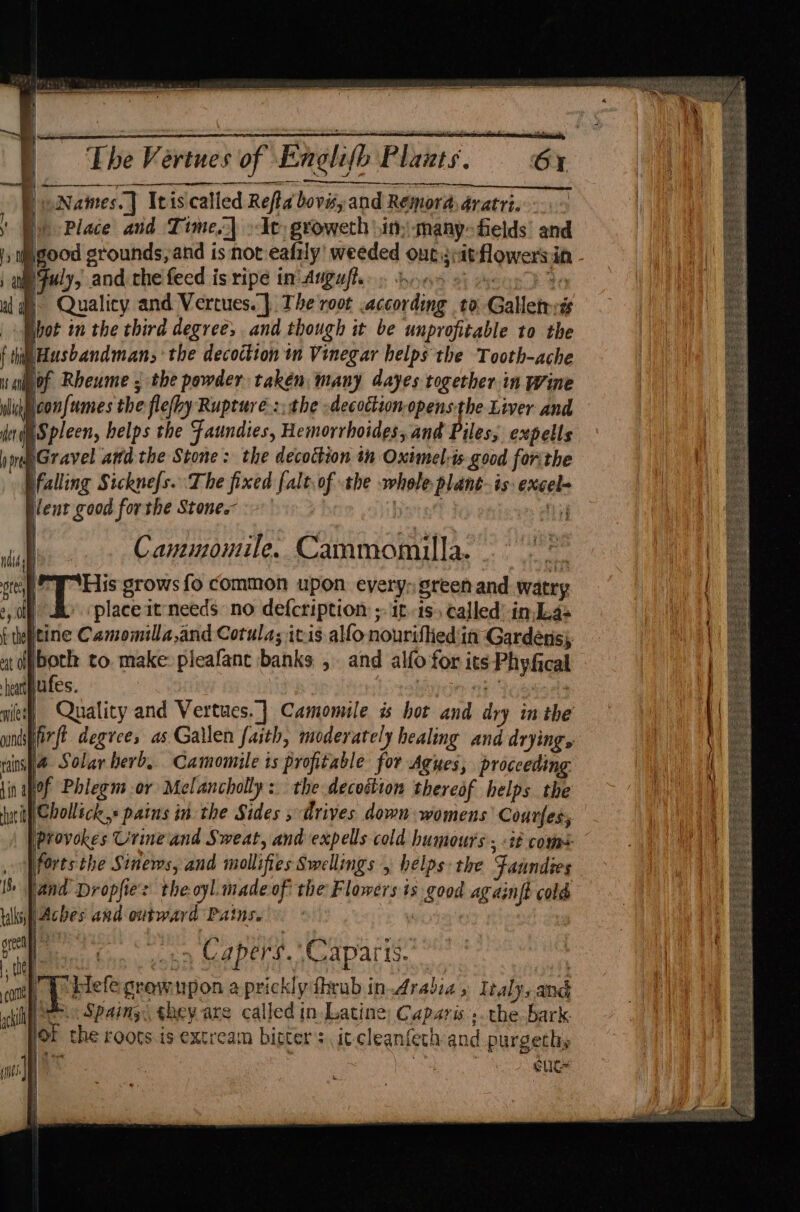 The Vertues of Engliſh Plants. 61
Names.] It is called Reſta bovis, and Remora aratri.
Place and Time.] It groweth in many fields and
good grounds, and is not eaſily weeded out; it flowers in
July, and the ſeed is ripe in Auguſt.
Quality and Vertues.] The root according to Gallen is
hot in the third degree, and though it be unprofitable to the
Husbandman, the decoction in Vinegar helps the Tooth-ache
of Rheume; the powder taken many dayes together in Wine
conſumes the fleſhy Rupture: the decoction opens the Liver and
Spleen, helps the Jaundies, Hemorrhoides, and Piles, expells
Gravel and the Stone: the decoction in Oximel is good for the
falling Sickneſs. The fixed ſalt of the whole plant is excel-
lent good for the Stone.
Cammomile. Cammomilla.
THis grows ſo common upon every green and watry
place it needs no deſcription; it is called in La-
tine Camomilla, and Cotula; it is alſo nouriſhed in Gardens,
both to make pleaſant banks, and alſo for its Phyſical
uſes.
Quality and Vertues.] Camomile is hot and dry in the
firſt degree, as Gallen ſaith, moderately healing and drying,
a Solar herb. Camomile is profitable for Agues, proceeding
of Phlegm or Melancholly: the decoction thereof helps the
Chollick, pains in the Sides, drives down womens Courſes,
provokes Urine and Sweat, and expells cold humours, it com-
forts the Sinews, and mollifies Swellings, helps the Jaundies
and Dropſie: the oyl made of the Flowers is good againſt cold
Aches and outward Pains.
Capers. Caparis.
THeſe grow upon a prickly ſhrub in Arabia, Italy, and
Spain; they are called in Latine Caparis; the bark
of the roots is extream bitter: it cleanſeth and purgeth,
cut-